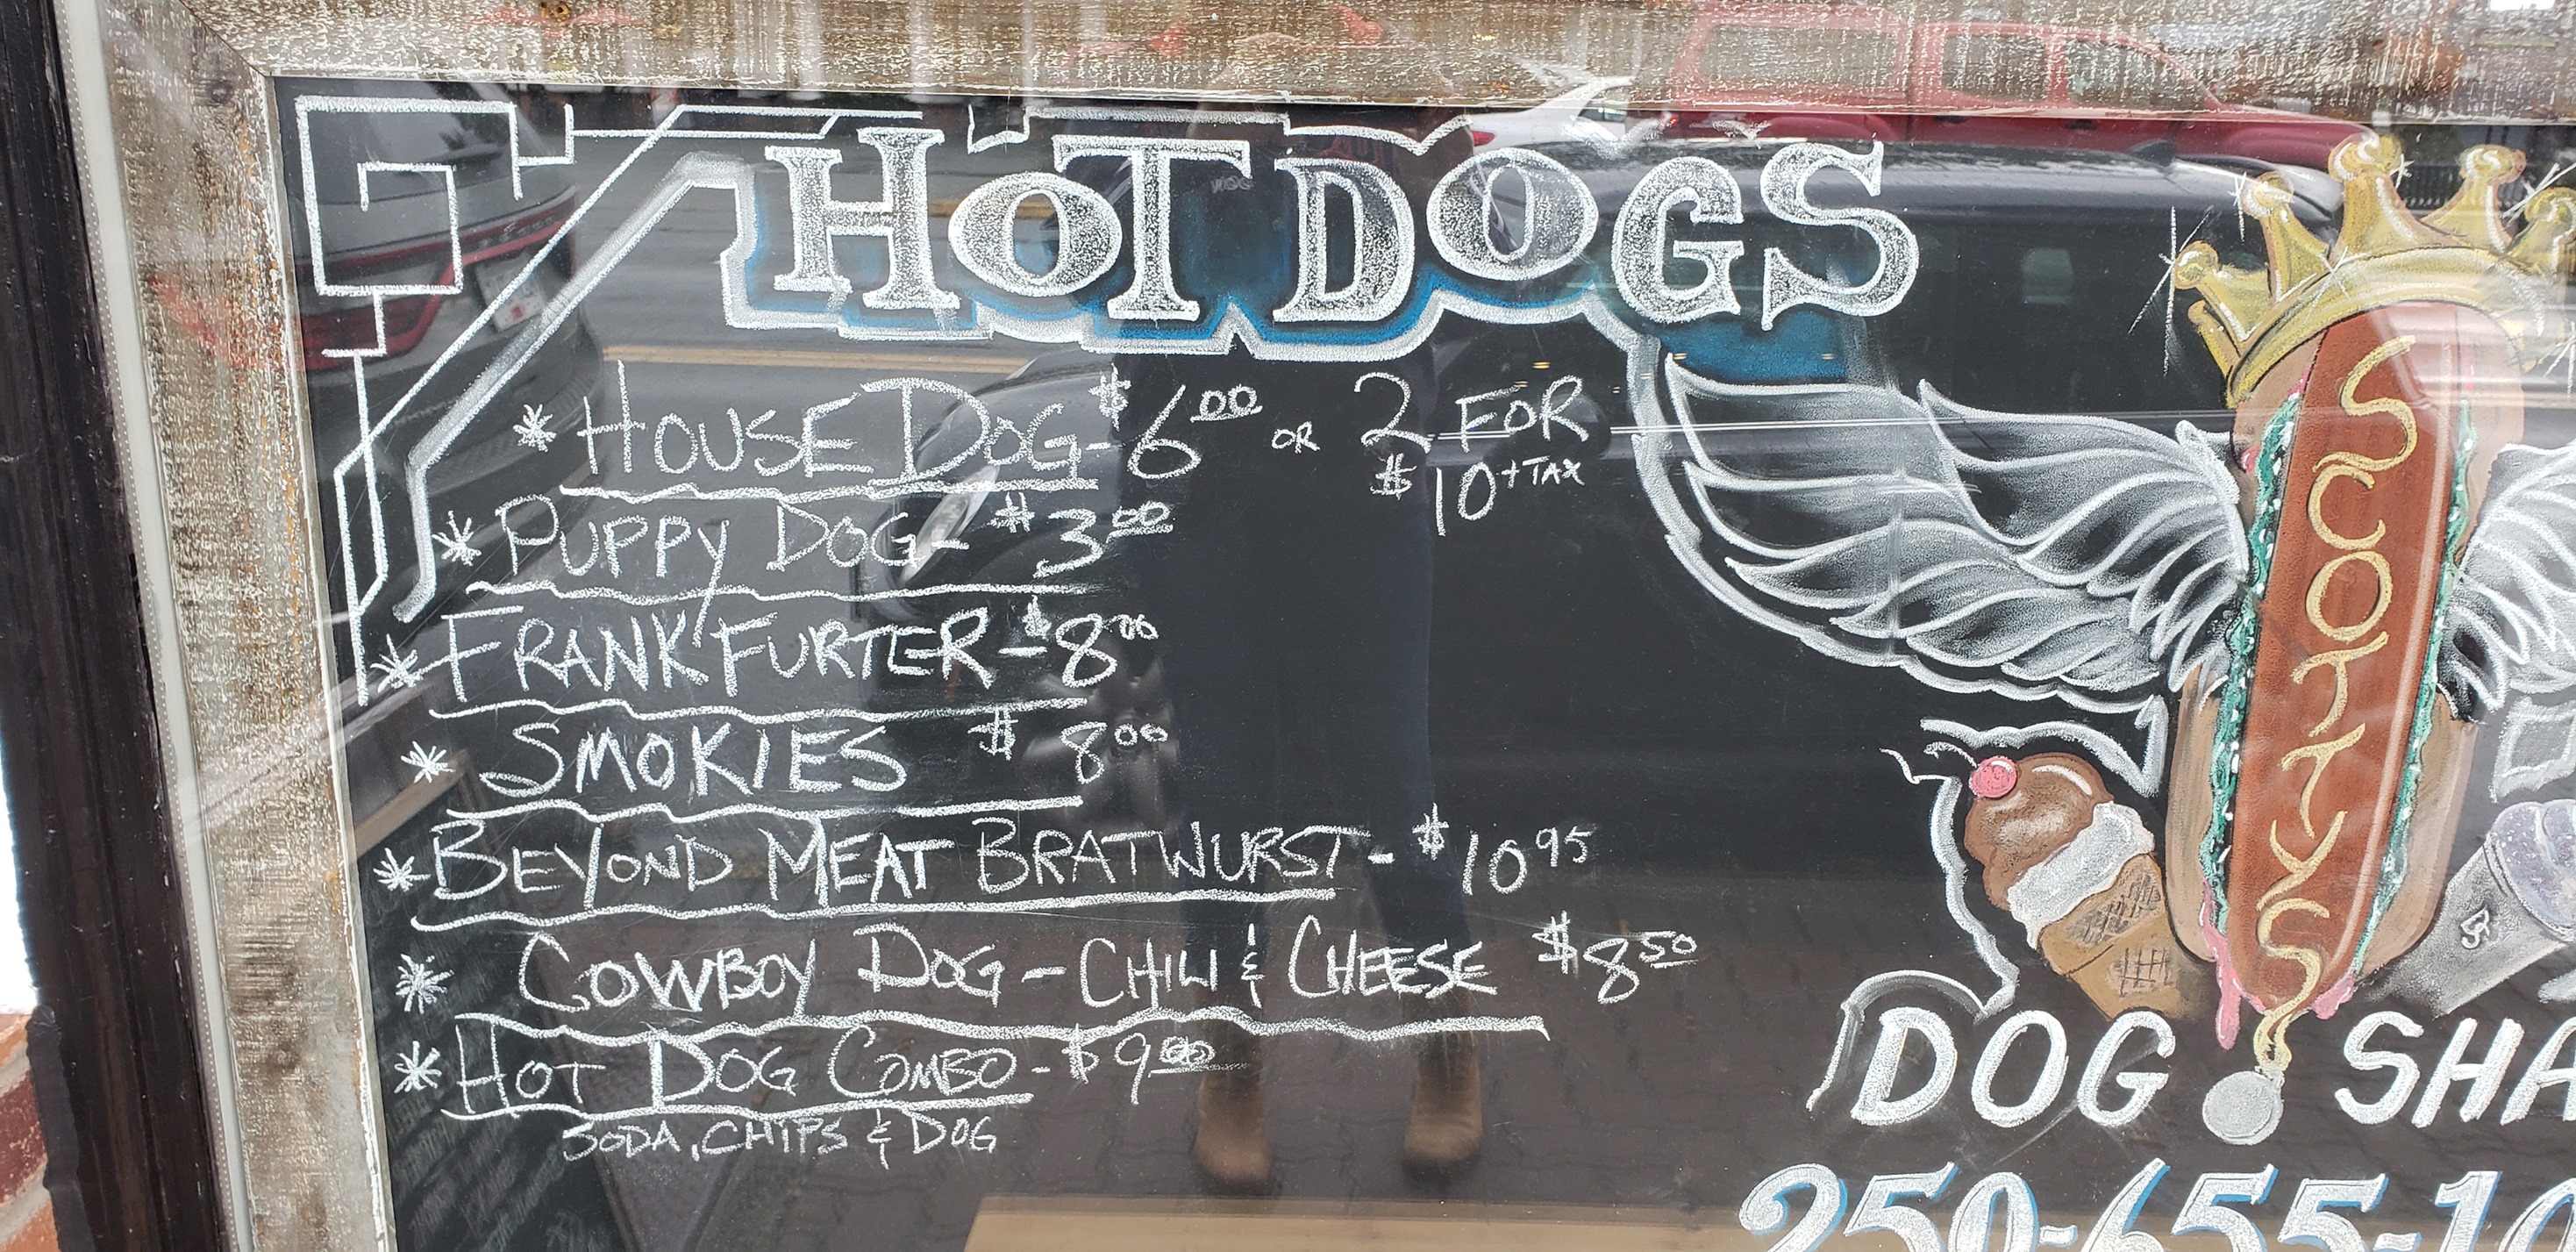 HOT DOGS
* HOUSE DOG - $6.00 OR 2 FOR
$10 + TAX
* PUPPY DOG - $3.50
* FRANKFURTER - $8.00
* SMOKIES $8.00
* BEYOND MEAT BRATWURST - $10.95
* COWBOY DOG - CHILI & CHEESE $8.50
* HOT DOG COMBO - $9.00
SODA, CHIPS & DOG
SCOTTYS
DOG SHA
250-655-10